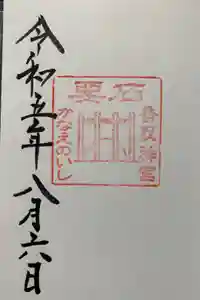 要石
香取神宮
かなえのいし
令和五年八月六日